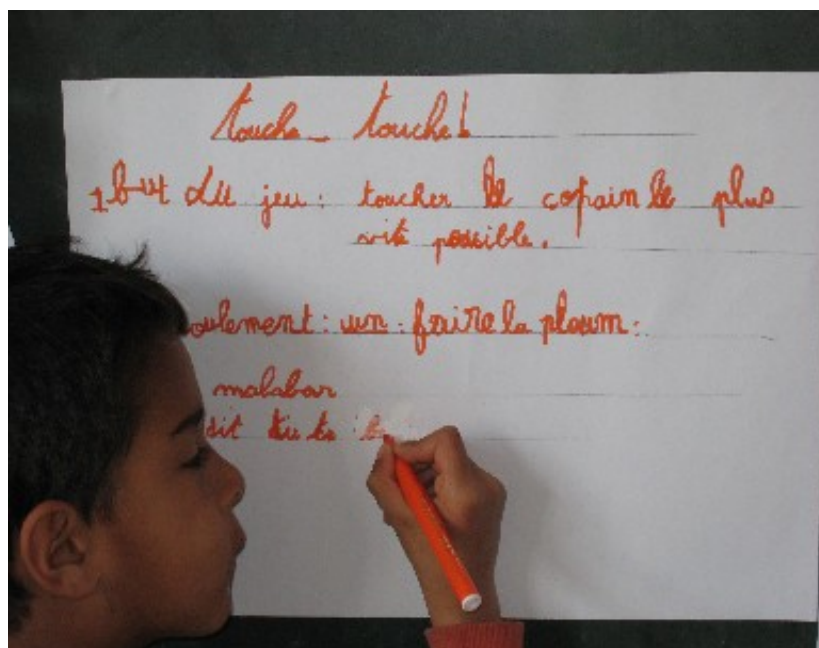 touche_ touche!
1 but du jeu : toucher le copain le plus
vite possible.
oulement : un : faire la ploum.
malabar
dit tu ts